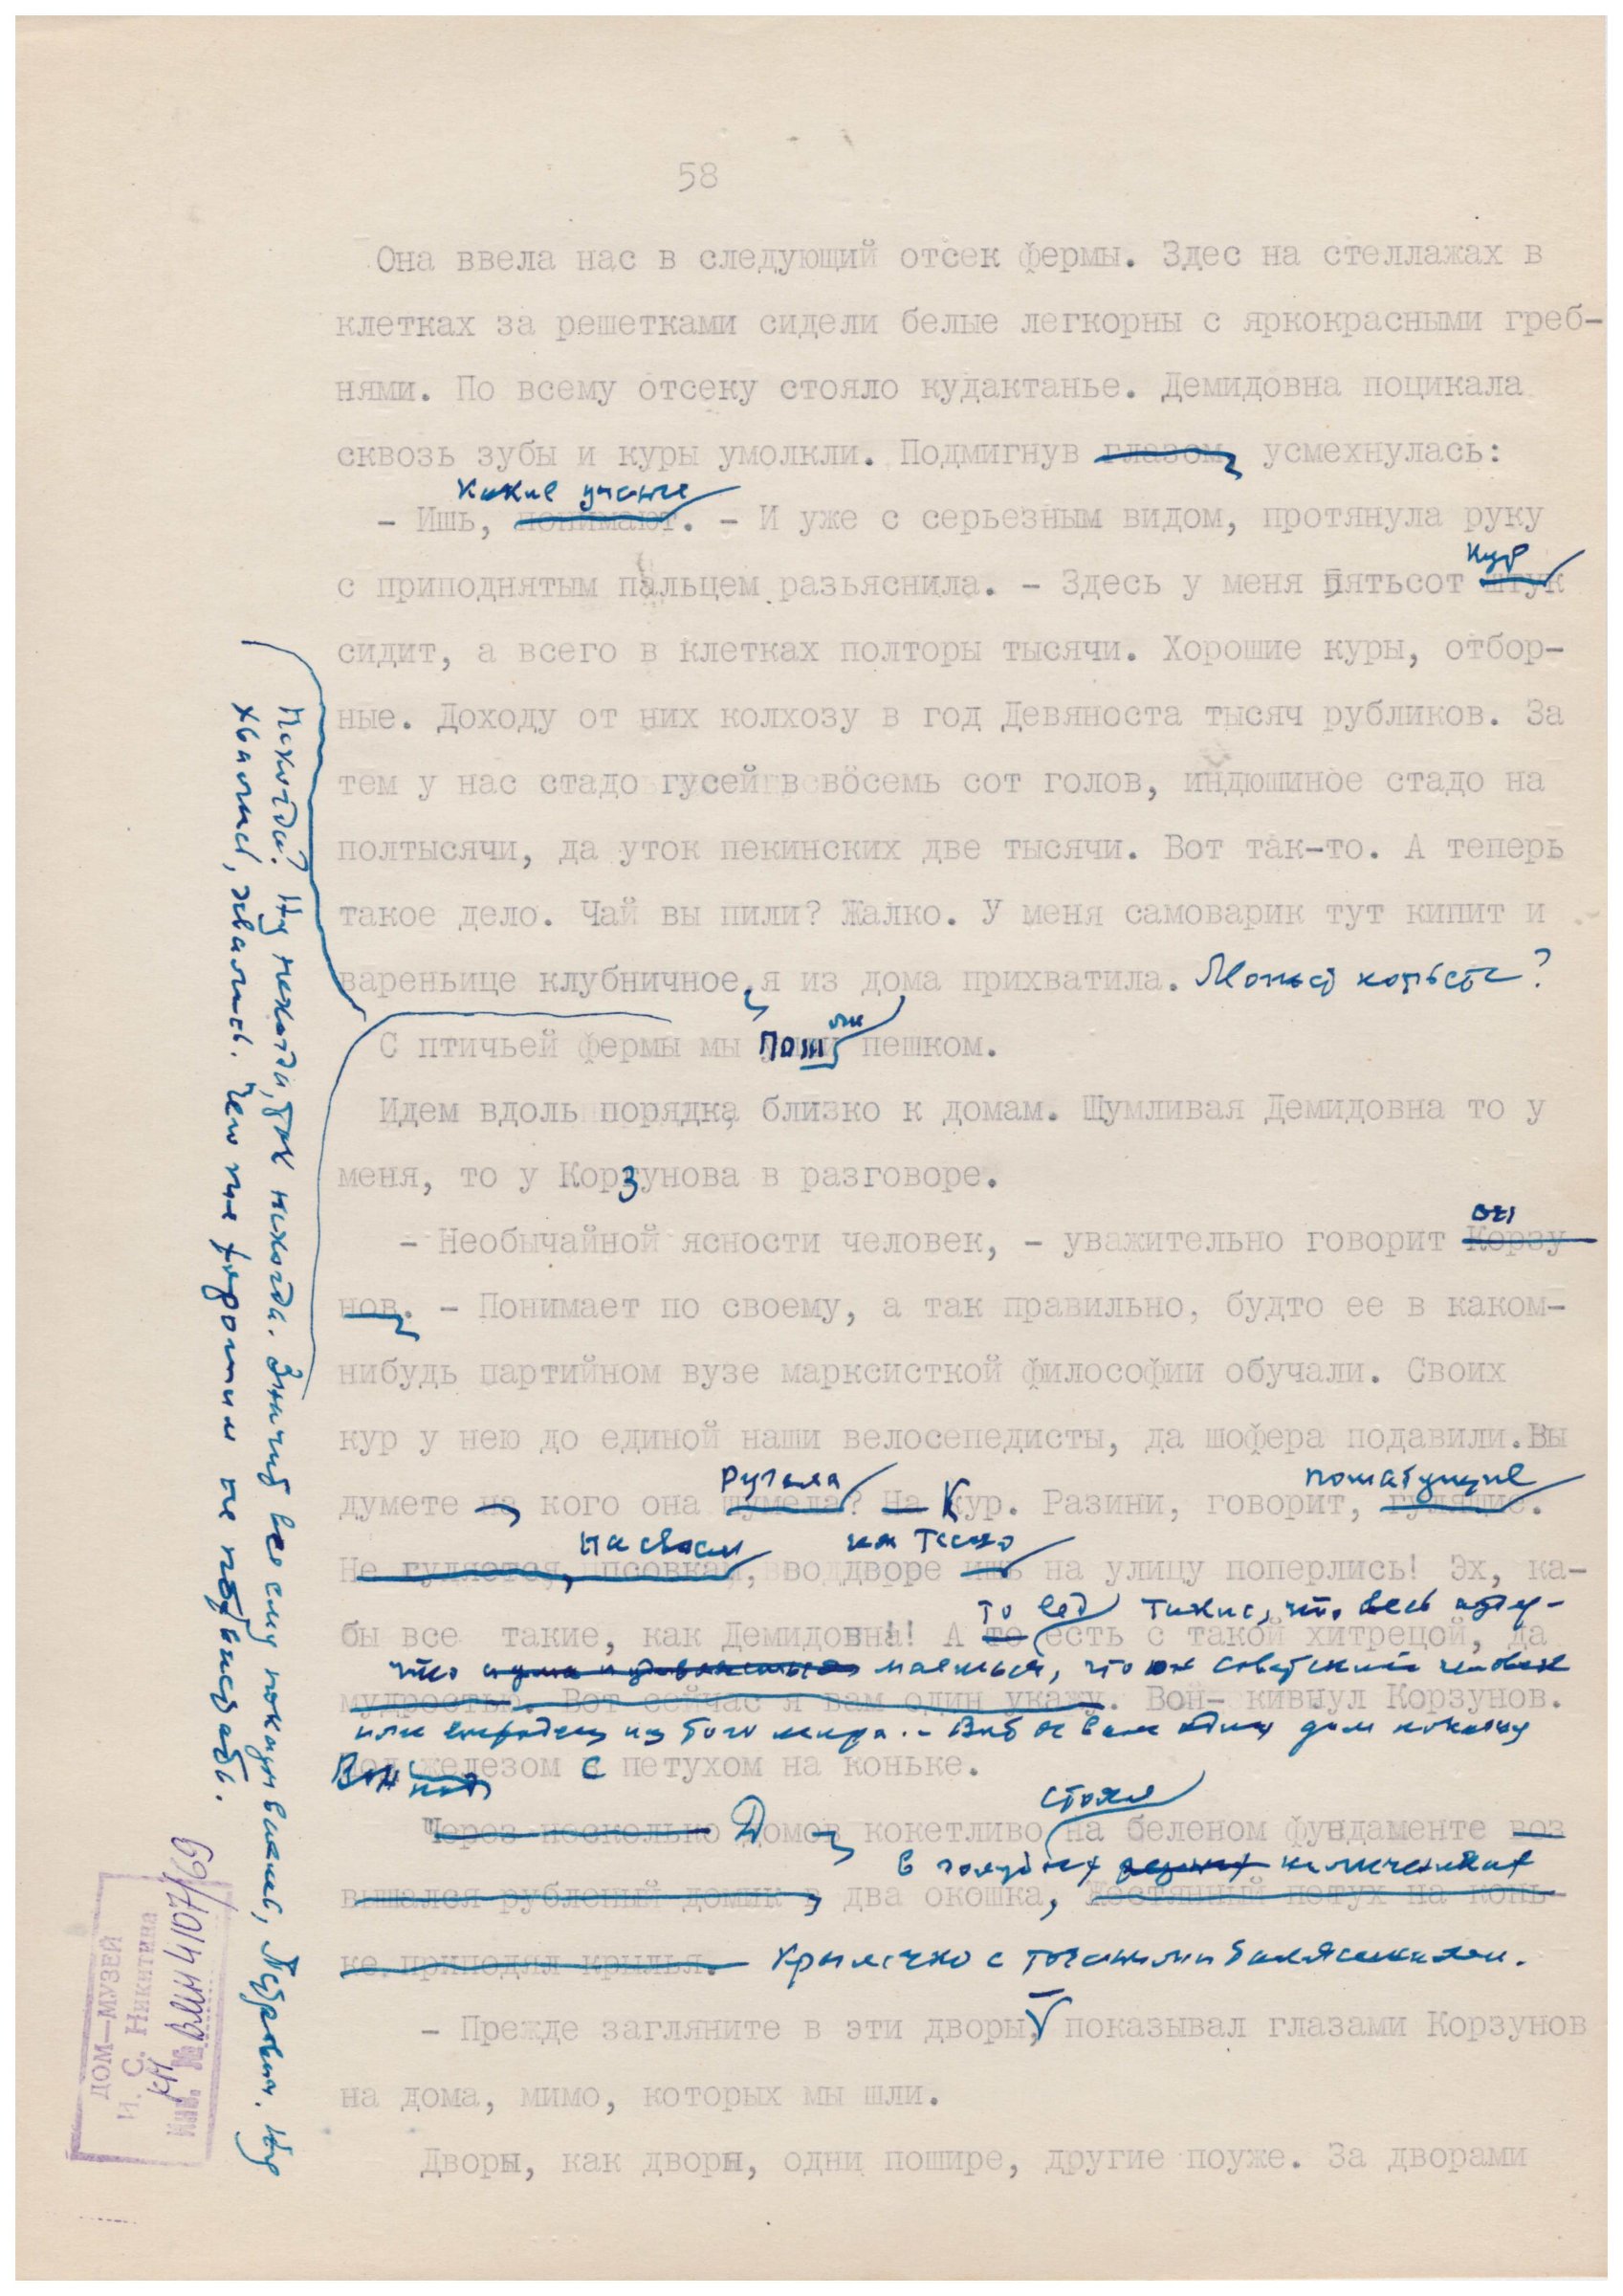 58
Она ввела нас в следующий отсек фермы. Здес на стеллажах в
клетках за решетками сидели белые легкорны с яркокрасными греб-
нями. По всему отсеку стояло кудактанье. Демидовна поцикала
сквозь зубы и куры умолкли. Подмигнув глазом, усмехнулась:
какие ученые
- Ишь, понимают. - И уже с серьезным видом, протянула руку
кур
с приподнятым пальцем разьяснила. - Здесь у меня пятьсот штук
сидит, а всего в клетках полторы тысячи. Хорошие куры, отбор-
ные. Доходу от них колхозу в год Девяноста тысяч рубликов. За
тем у нас стадо гусей в восемь сот голов, индюшиное стадо на
полтысячи, да уток пекинских две тысячи. Вот так-то. А теперь
такое дело. Чай вы пили? Жалко. У меня самоварик тут кипит и
вареньице клубничное, я из дома прихватила. Может
Некогда? Ну некогда, так некогда. Значит все ему показывайте, Петрович. Ну
хвались, хвались. Чего не
С птичьей фермы мы Пошли пешком.
Идем вдоль порядка, близко к домам. Шумливая Демидовна то у
меня, то у Корзунова в разговоре.
он
- Необычайной ясности человек, - уважительно говорит Корзу-
нов. - Понимает по своему, а так правильно, будто ее в каком-
нибудь партийном вузе марксисткой философии обучали. Своих
кур у нею до единой наши велосепедисты, да шофера подавили. Вы
ругала
думете на кого она шумела? На Кур. Разини, говорит, гулящие.
на своем
Не гуляется, псовкам, во дворе ишь на улицу поперлись! Эх, ка-
то ведь такие, что весь
бы все такие, как Демидовна! А то есть с такой хитрецой, да
что маешься, что он советский человек
мудростью. Вот сейчас я вам один укажу. Вон- кивнул Корзунов.
или из того мира. - Вот я вам один дом покажу
Вон под железом с петухом на коньке.
стоял
Через несколько Домов кокетливо на беленом фундаменте воз
в голубых наличниках
вышался рубленый домик в два окошка, жестянный петух на конь-
ке приподял крылья. Крылечко с точеными балясинками.
- Прежде загляните в эти дворы, - показывал глазами Корзунов
на дома, мимо, которых мы шли.
Дворы, как дворы, одни пошире, другие поуже. За дворами
ДОМ—МУЗЕЙ
И. С. Никитина
КП
Инв. № ВЛМ 4107/69